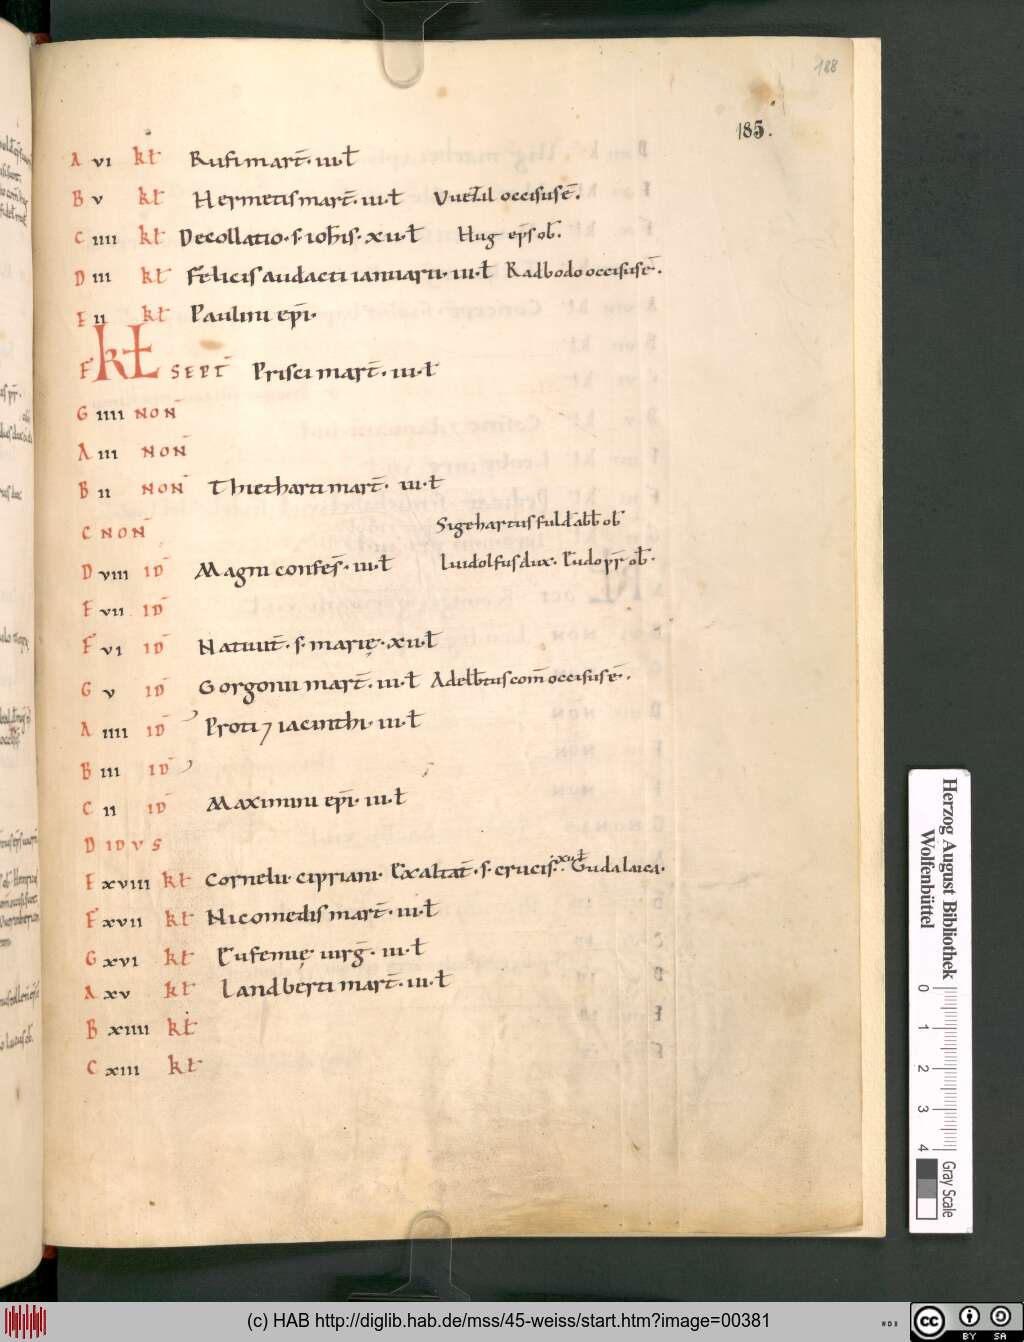 188
185.
A vi kł Rufi mart̄. iii. ł
B v kł Hermetis mart̄. iii. ł occisus ē.
C iiii kł Decollatio. s. ioħis. xii. ł Hug ep̄s ob̄.
D iii kł Felicis audacti ianuarii. iii. ł Radbodo occisus ē.
E ii kł Paulini ep̄i.
F kł SEPT̄ Prisci mart̄. iii. ł
G iiii NON̄
A iii NON̄
B ii NON̄ Thietharti mart̄. iii. ł
C NON̄ Sigehartus fuld abb ob̄
D viii ID̄ Magni confes̄. iii. ł Luidolfus dux. Eudo pr̄ ob̄.
E vii ID̄
F vi ID̄ Natiuit̄. s. marię. xii. ł
G v ID̄ Gorgonii mart̄. iii. ł Adelb̄tus com̄ occisus ē.
A iiii ID̄ Proti ⁊ iacinthi. iii. ł
B iii ID̄
C ii ID̄ Maximini ep̄i. iii. ł
D IDVS
E xviii kł Cornelii. cipriani. Exaltat̄. s. crucis. xii. ł Guda laica.
F xvii kł Nicomedis mart̄. iii. ł
G xvi kł Eufemię uirḡ. iii. ł
A xv kł Landberti mart̄. iii. ł
B xiiii kł
C xiii kł
Herzog August Bibliothek
Wolfenbüttel
0 1 2 3 4
Gray Scale
(c) HAB http://diglib.hab.de/mss/45-weiss/start.htm?image=00381
WDB
cc BY SA